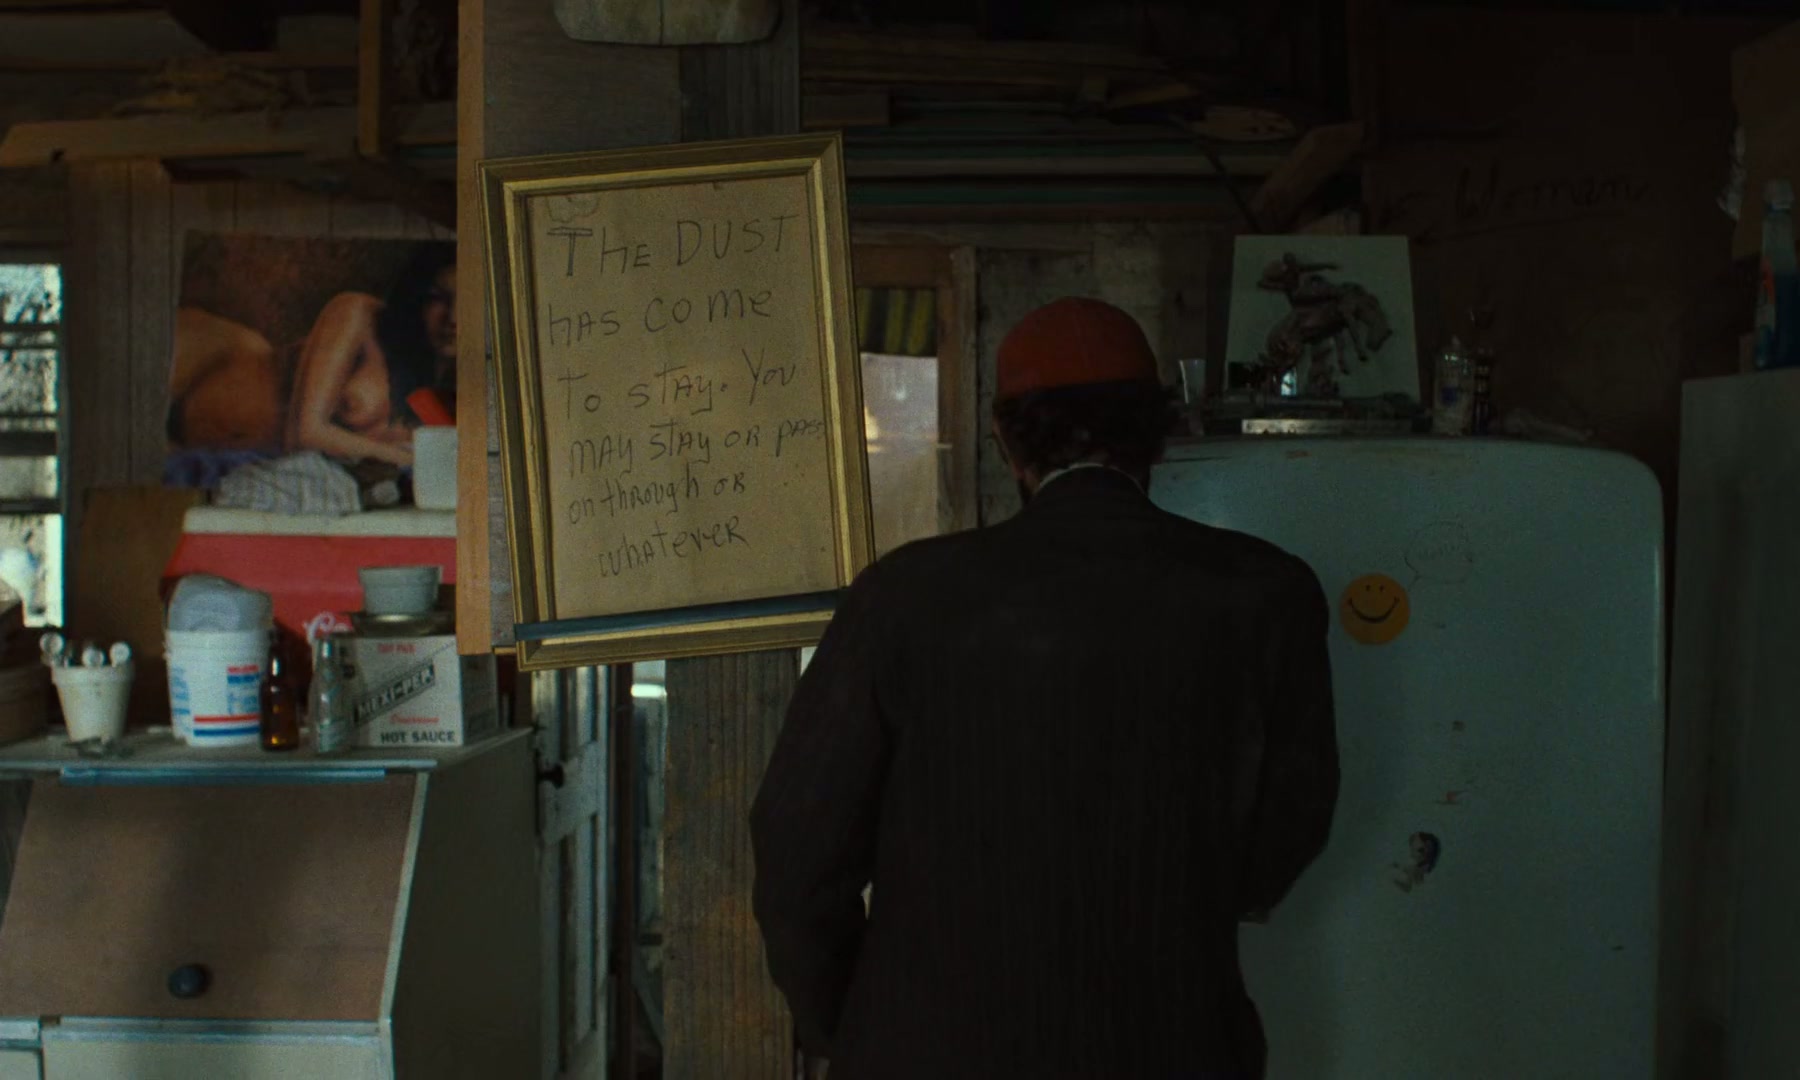 THE DUST
HAS COME
TO STAY. YOU
MAY STAY OR PASS
on through OR
whatever
Woman
MEXI-PEP
HOT SAUCE